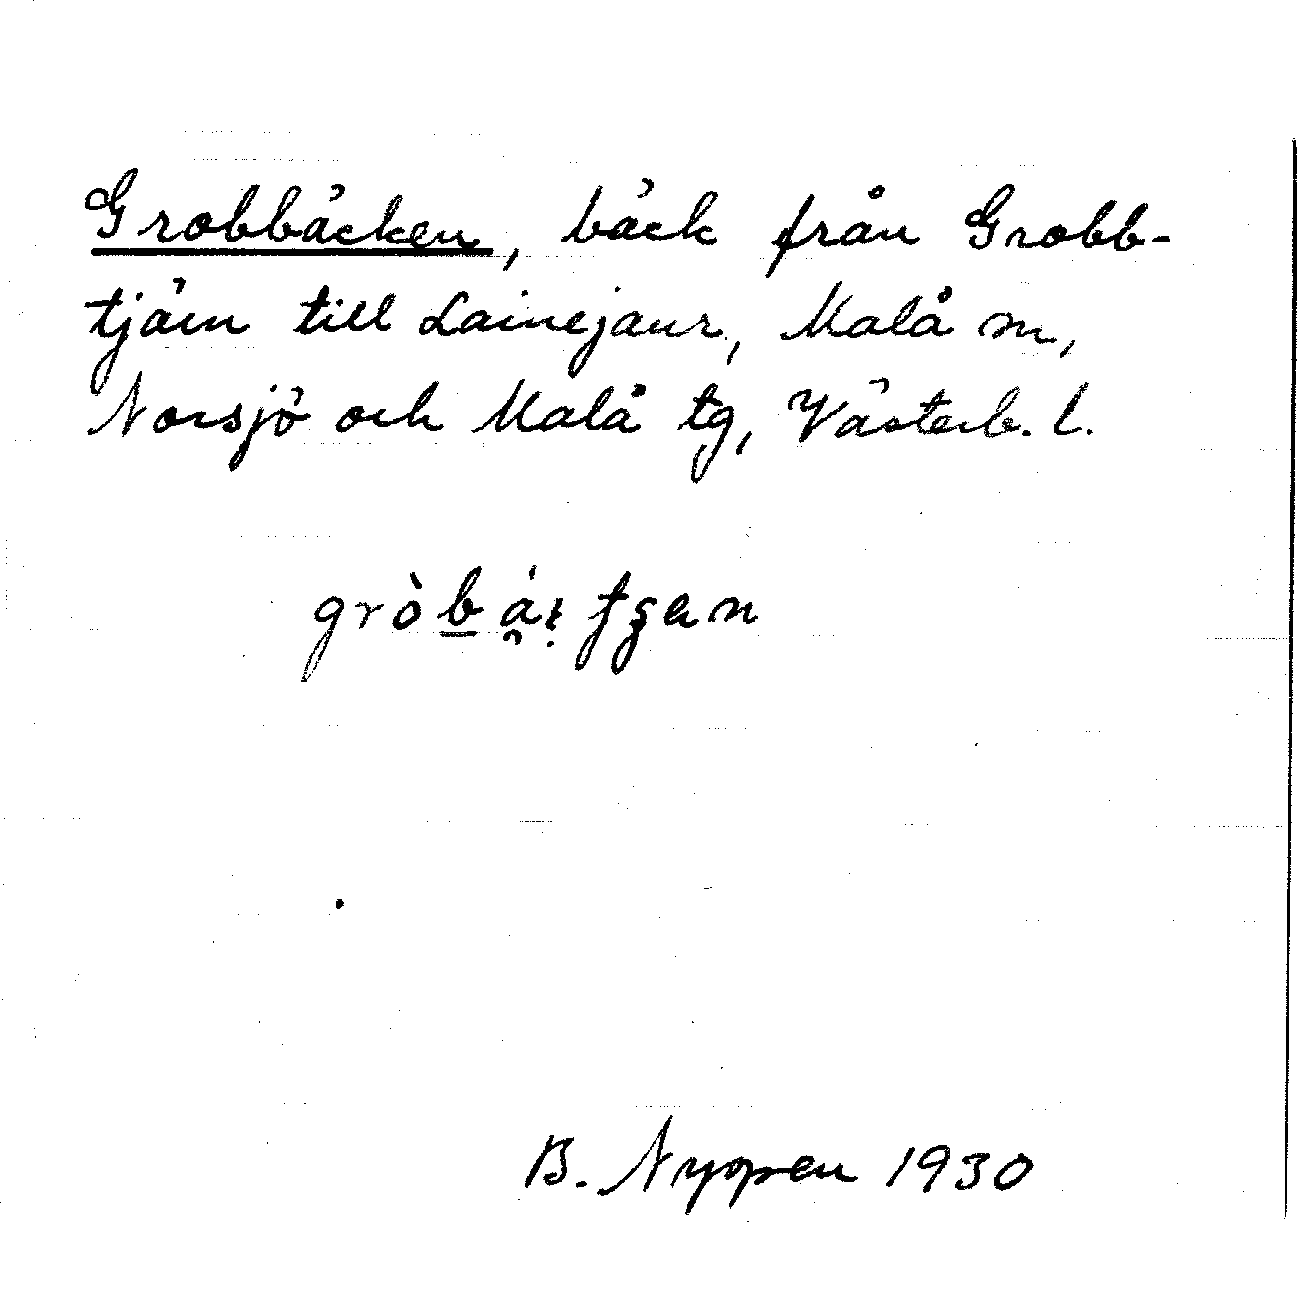 Grobbäcken, bäck från Grobb-
tjärn till Lainejaur, Malå sn,
Norsjö och Malå tg, Västerb. l.
B. Nyopen 1930